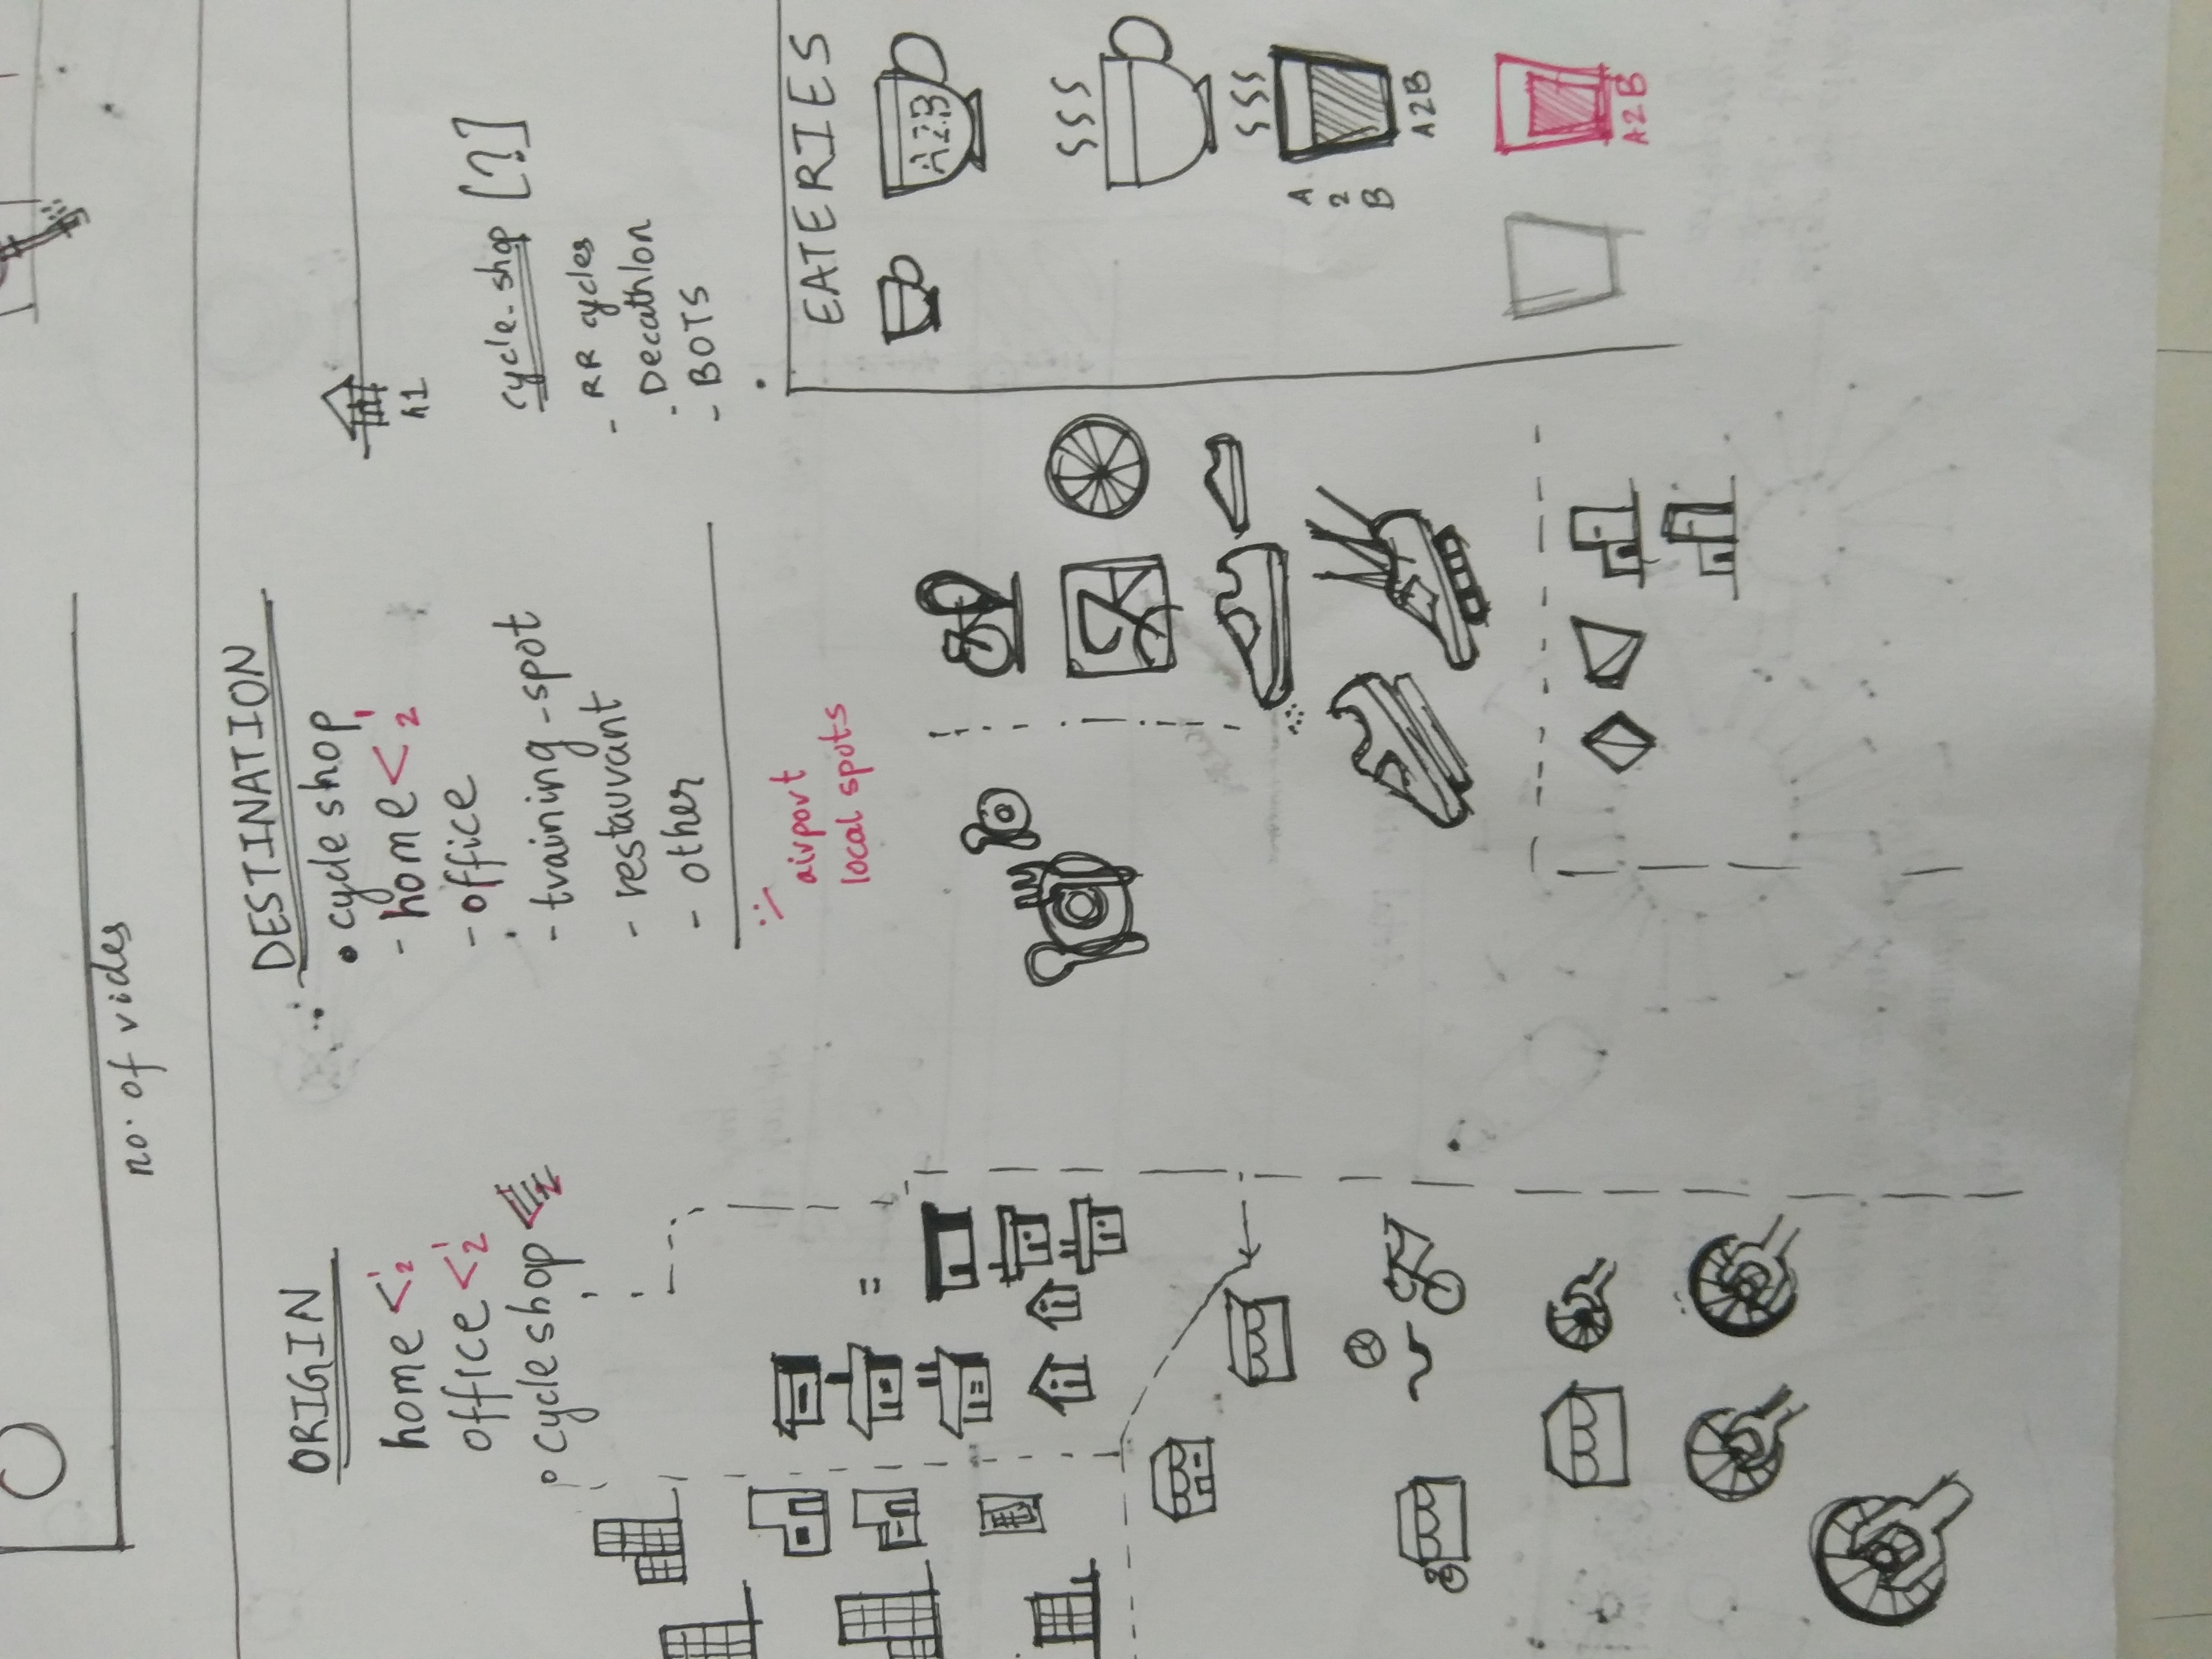 no. of rides
ORIGIN
home < 1 2
office < 1 2
• cycle shop
DESTINATION
• cycle shop
- home < 1 2
- office
- training-spot
- restauvant
- other
airport
local spots
h1
cycle-shop [?]
- RR cycles
- Decathlon
- BOTS
EATERIES
A2B
A
2
B
A2B
A2B